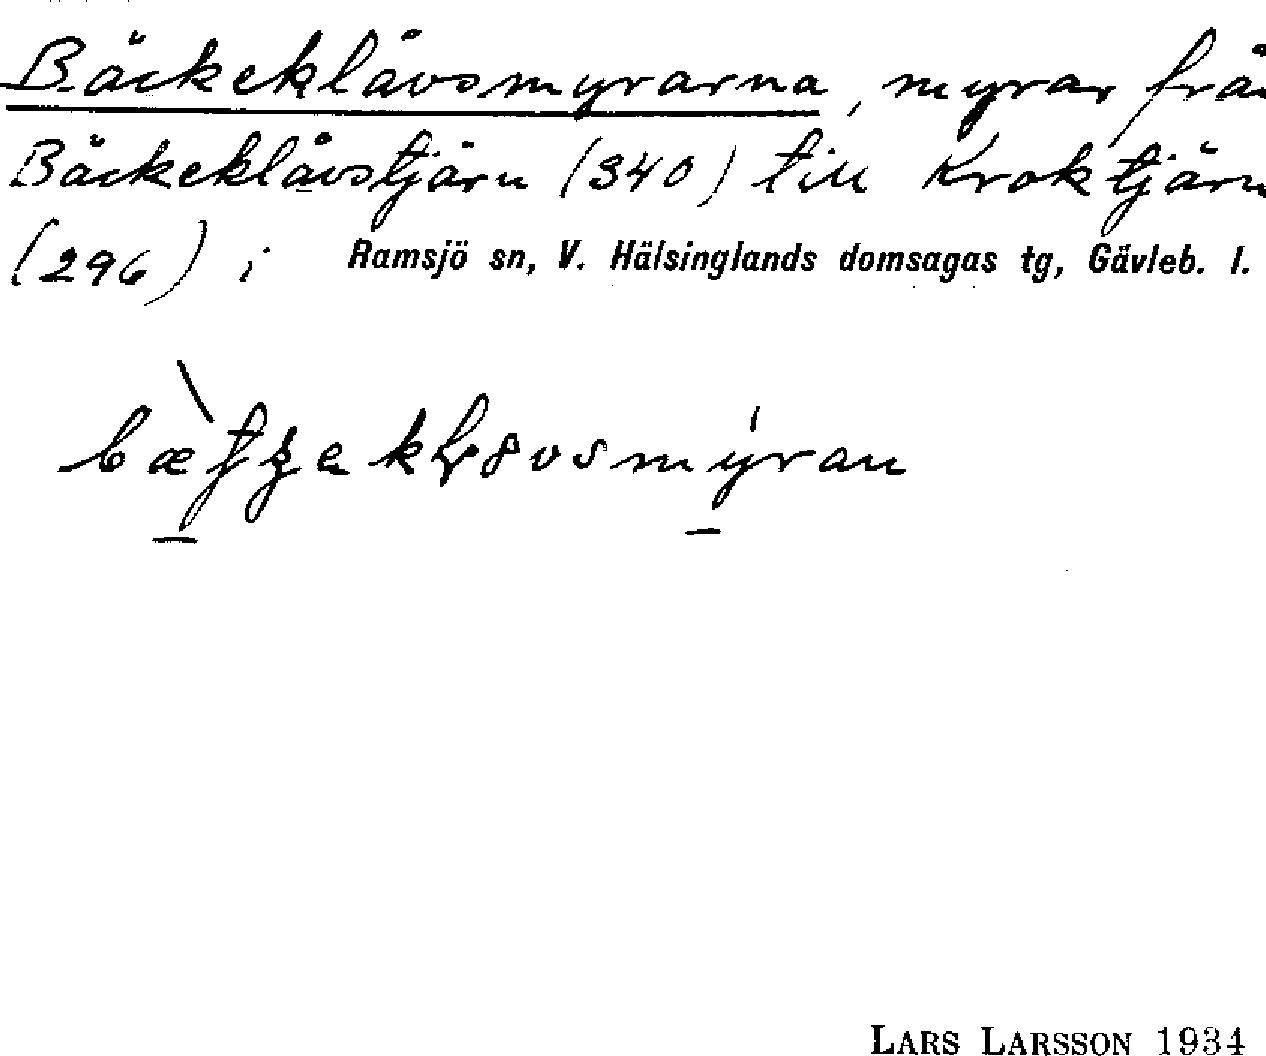 Bäckeklåvsmyrarna, myrar frå
Bäckeklåvstjärn (340) till Kroktjärn
(296) i Ramsjö sn, V. Hälsinglands domsagas tg, Gävleb. l.
LARS LARSSON 1934